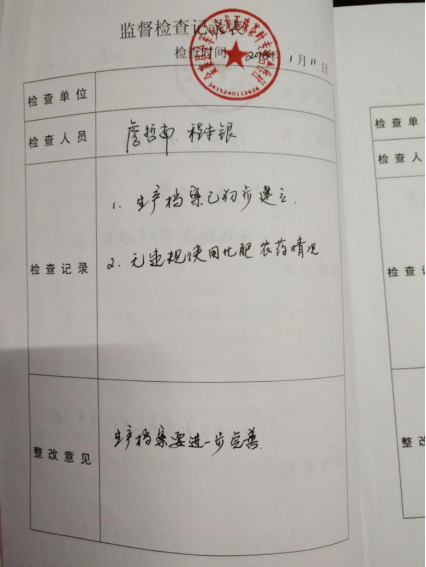 监督检查记录表
检查时间 1月11日
检查单位
检查人员
检查记录
1. 生产档案已初步建立.
2. 无违规使用化肥农药情况
整改意见
生产档案要进一步完善.
3415240112626
检查单
检查人
检查
整改